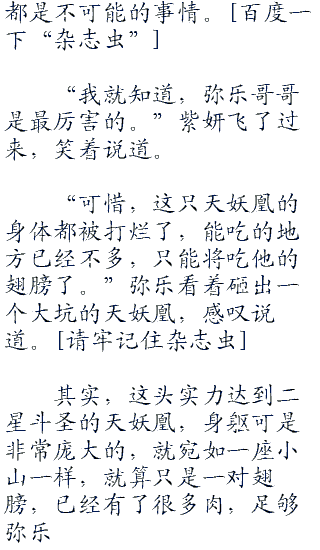 都是不可能的事情。[百度一
下“杂志虫”]
“我就知道，弥乐哥哥
是最厉害的。”紫妍飞了过
来，笑着说道。
“可惜，这只天妖凰的
身体都被打烂了，能吃的地
方已经不多，只能将吃他的
翅膀了。”弥乐看着砸出一
个大坑的天妖凰，感叹说
道。[请牢记住杂志虫]
其实，这头实力达到二
星斗圣的天妖凰，身躯可是
非常庞大的，就宛如一座小
山一样，就算只是一对翅
膀，已经有了很多肉，足够
弥乐